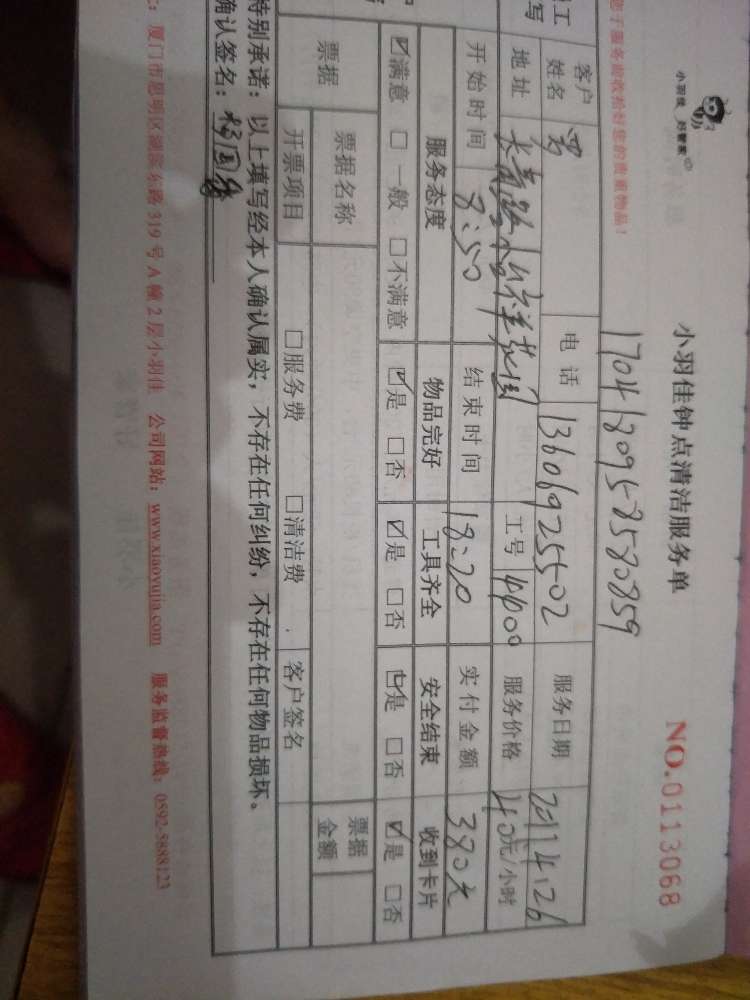 小羽佳 好管家
小羽佳钟点清洁服务单
NO.0113068
17041809585 80859
服务前收拾好您的贵重物品！
客户姓名 电话 13606925502 服务日期 2017.4.26
地址 工号 4400 服务价格 40元/小时
开始时间 8:50 结束时间 18:20 实付金额 380元
服务态度 物品完好 工具齐全 安全结束 收到卡片
☑满意 □一般 □不满意 ☑是 □否 ☑是 □否 ☑是 □否 ☑是 □否
票据 票据名称 票据金额
开票项目 □服务费 □清洁费 客户签名
特别承诺：以上填写经本人确认属实，不存在任何纠纷，不存在任何物品损坏。
确认签名：
厦门市思明区湖滨东路319号A幢2层小羽佳 公司网站：www.xiaoyujia.com 服务监督热线：0592-5888123